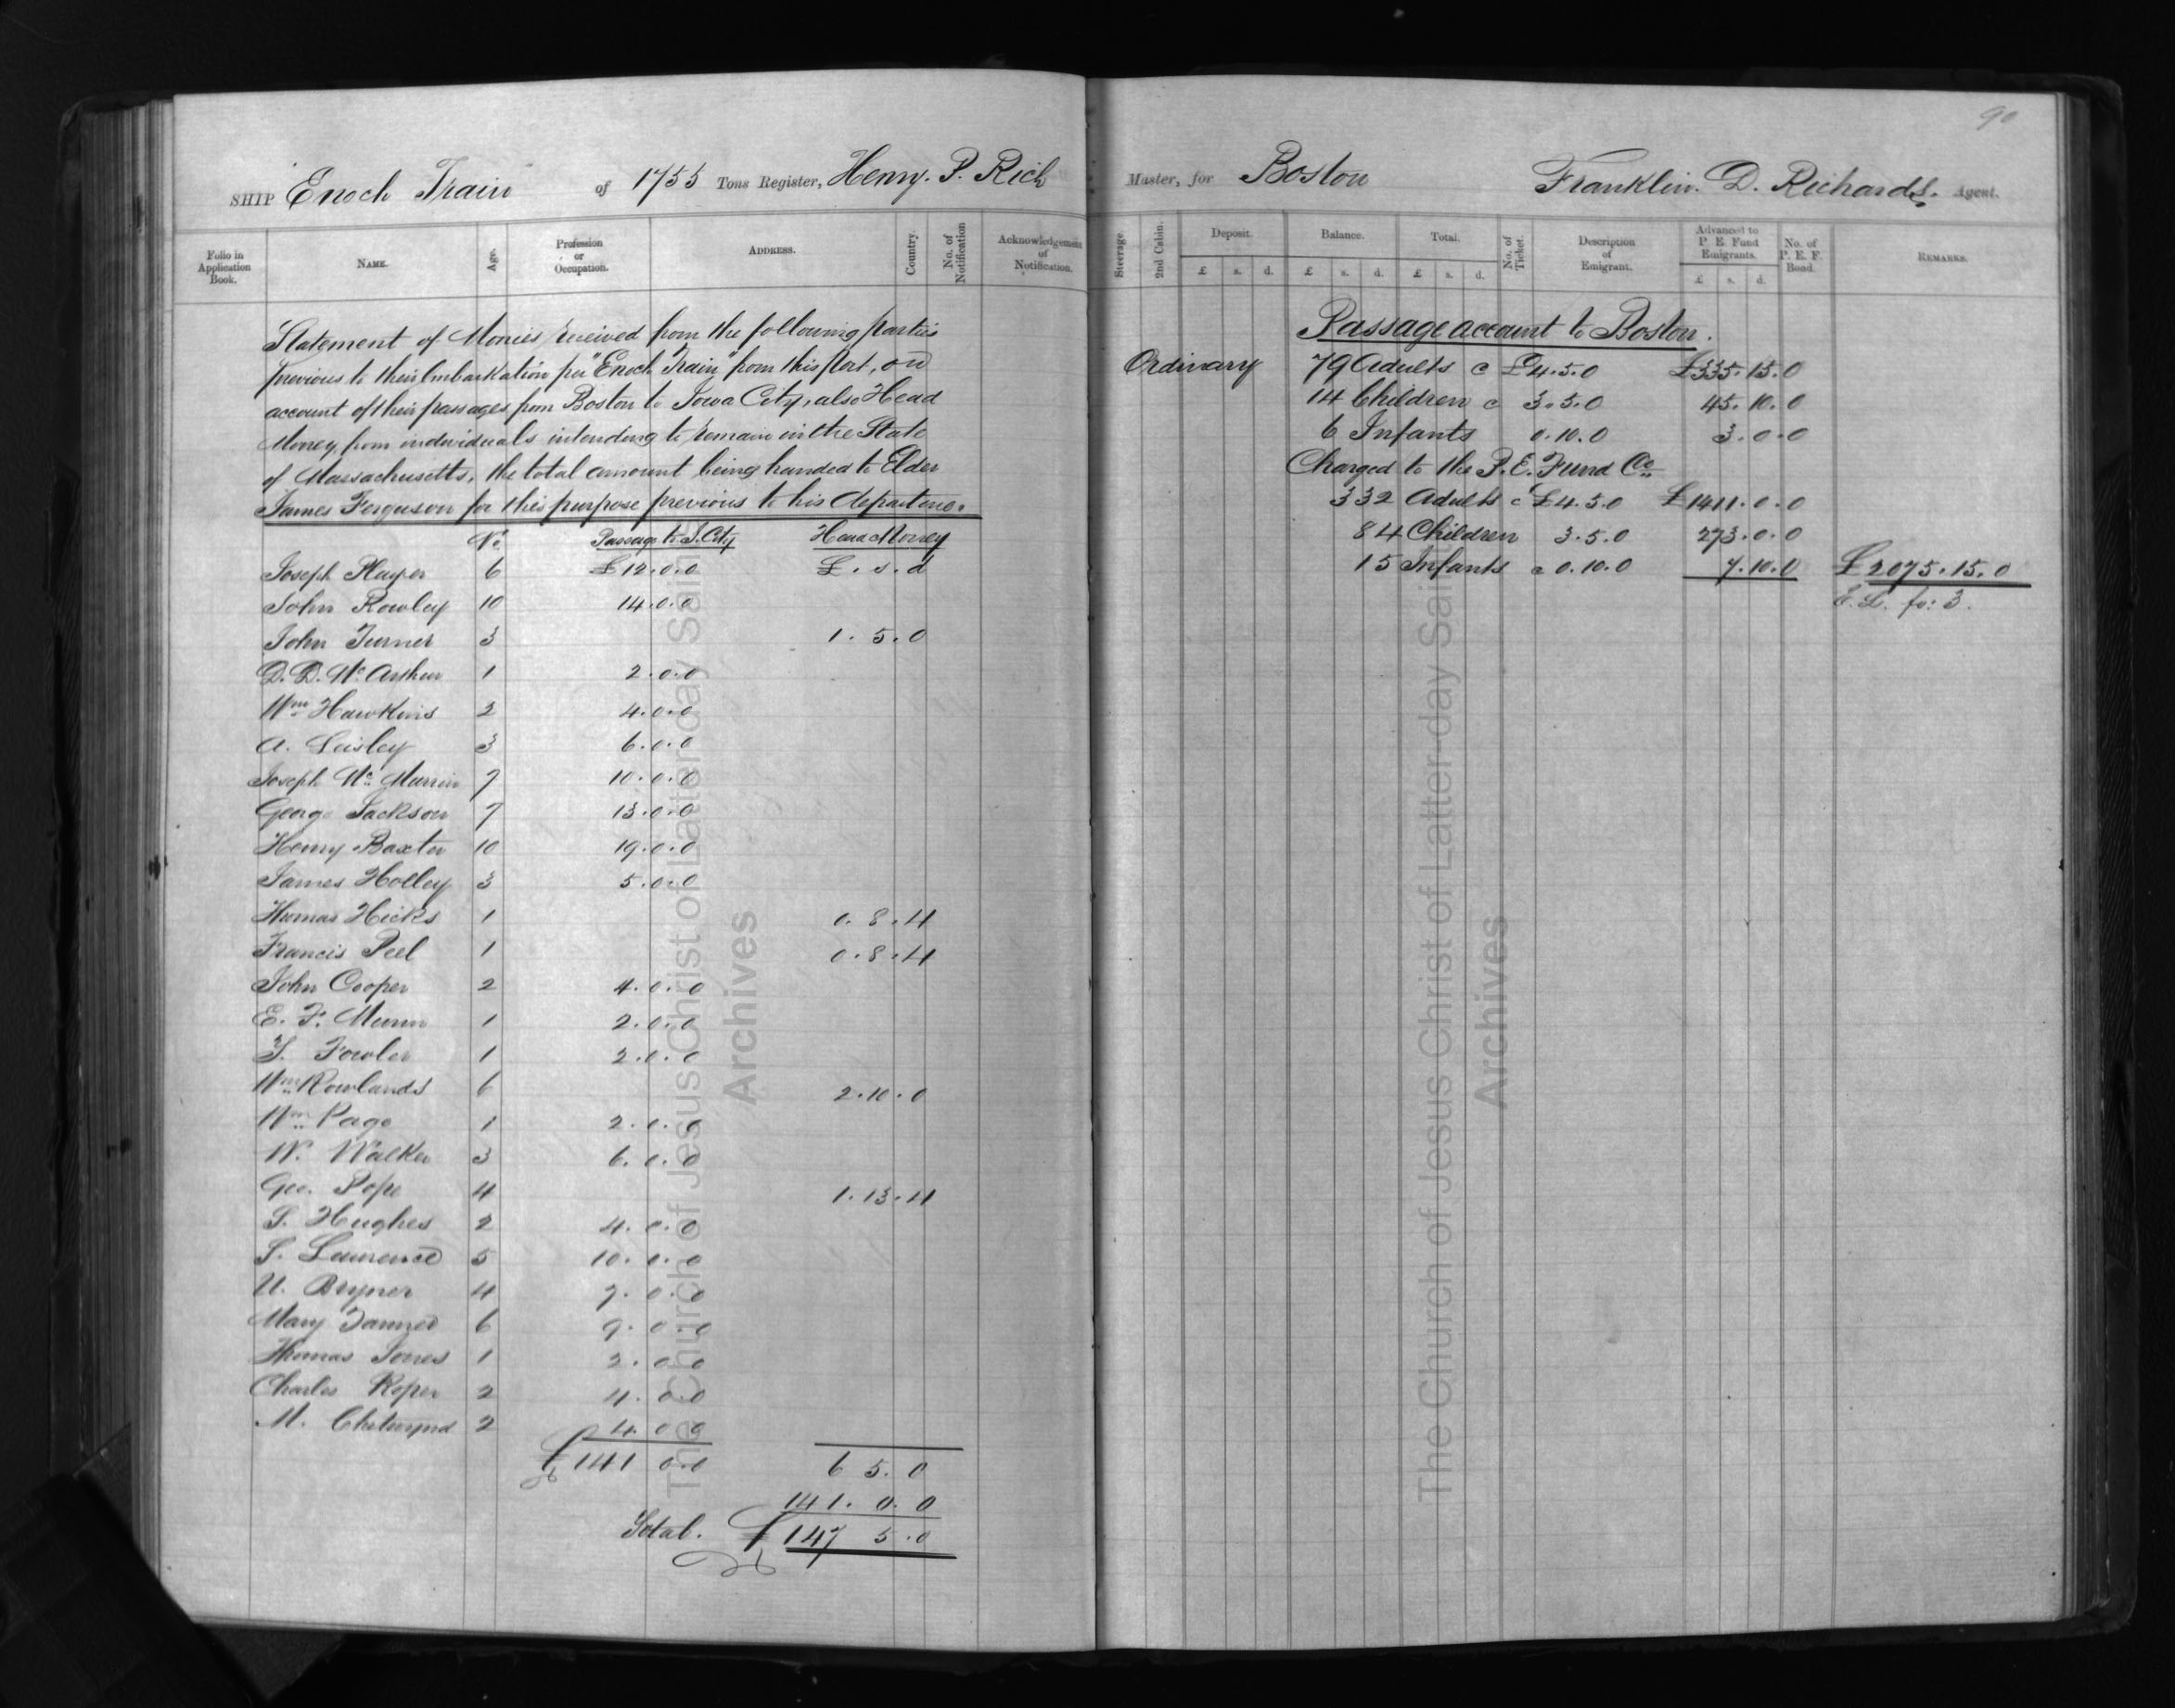 90
SHIP Enoch Train of 1755 Tons Register, Henry. P. Rich Master, for Boston Franklin. D. Richards. Agent.
Folio in Application Book. NAME. Age. Profession or Occupation. ADDRESS. Country. No. of Notification Acknowledgement of Notification. Steerage 2nd Cabin. Deposit. £ s. d. Balance. £ s. d. Total. £ s. d. No. of Ticket. Description of Emigrant. Advanced to P. E. Fund Emigrants. £ s. d. No. of P. E. F. Bond. REMARKS.
Statement of Monies received from the following parties
previous to their Embarkation per "Enoch Train" from this Port, on
account of their passages from Boston to Iowa City, also Head
Money from individuals intending to remain in the State
of Massachusetts, the total amount being handed to Elder
James Ferguson for this purpose previous to his departure.
No. Passage to I. City Head Money
Joseph Player 6 £12.0.0 £ . s . d
John Rowley 10 14.0.0
John Turner 3 1. 5. 0
D. D. Mc. Arthur 1 2.0.0
Wm Hawkins 2 4.0.0
A. Leisley 3 6.0.0
Joseph Mc. Murrin 7 10.0.0
George Jackson 7 13.0.0
Henry Baxter 10 19.0.0
James Holley 3 5.0.0
Thomas Hicks 1 0. 8. 4
Francis Peel 1 0. 8. 4
John Cooper 2 4. 0. 0
E. F. Munn 1 2.0.0
T. Fowler 1 2.0.0
Wm Rowlands 6 2.10.0
Wm Page 1 2.0.0
W. Walker 3 6.0.0
Geo. Pope 4 1.13.4
S. Hughes 2 4.0.0
S. Laurence 5 10.0.0
U. Bryner 4 7.0.0
Mary Tanner 6 9.0.0
Thomas Jones 1 2.0.0
Charles Roper 2 4.0.0
M. Chetwynd 2 4.0.0
£141 0.0 6 5.0
141. 0. 0
Total. £147 5.0
Passage account to Boston.
Ordinary 79 Adults @ £4.5.0 £335.15.0
14 Children @ 3.5.0 45.10.0
6 Infants 0.10.0 3.0.0
Charged to the P. E. Fund Co.
332 Adults @ £4.5.0 £1411.0.0
84 Children 3.5.0 273.0.0
15 Infants @ 0.10.0 7.10.0 £2075.15.0
E. L. fo: 3.
The Church of Jesus Christ of Latter-day Saints
Archives
The Church of Jesus Christ of Latter-day Saints
Archives